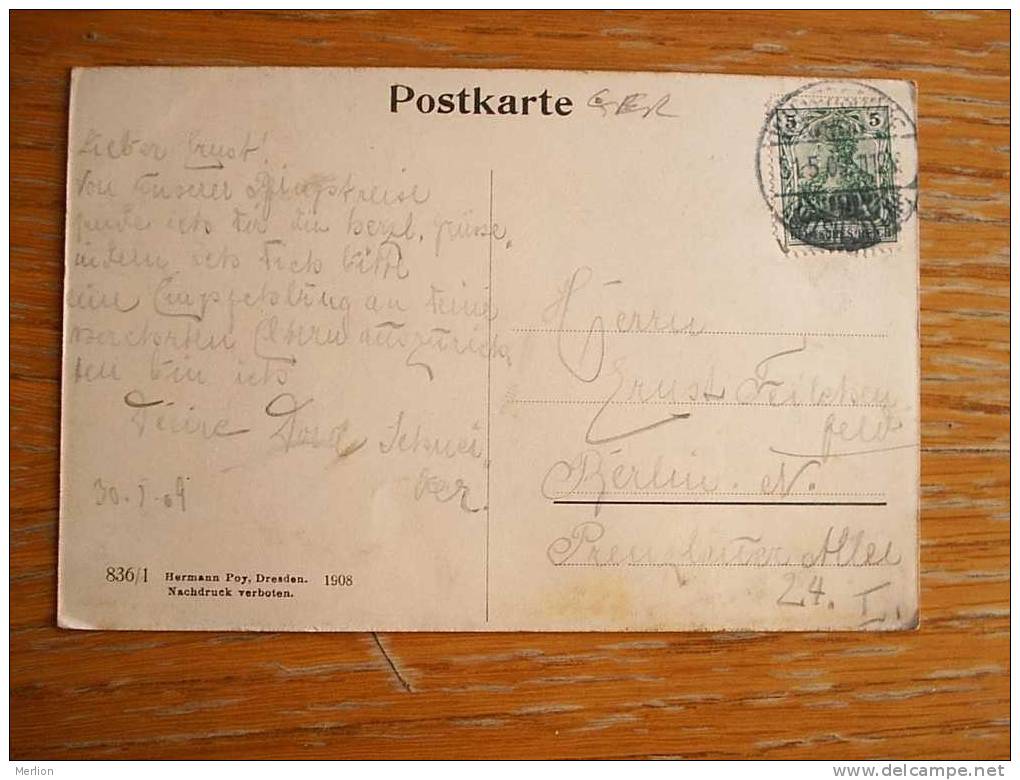 Postkarte GER
5 5
Lieber Ernst!
Von unserer Pfingstreise
sende ich Dir die herzl. Grüsse,
indem ich Dich bitte
eine Empfehlung an Deine
verehrten Eltern auszurich
ten bin ich
Deine Schnei
der.
30.5.09
Herrn
Ernst Feilchen
feld
Berlin. N.
Prenzlauer Allee
24. I.
836/1 Hermann Poy, Dresden. 1908
Nachdruck verboten.
Merlion
delcampe.net